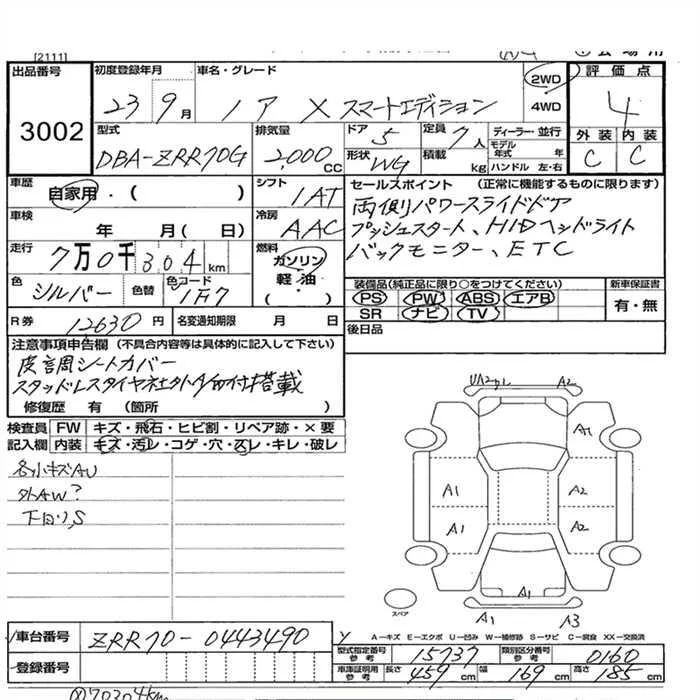 [2111]
出品番号 初度登録年月 車名・グレード 2WD 評価点
3002 23 9月 ノア X スマートエディション 4WD 4
型式 排気量 ドア 5 定員 7人 ディーラー・並行 外装 内装
DBA-ZRR70G 2,000 CC 形状 WG 積載 kg モデル年式 年 ハンドル 左・右 C C
車歴 自家用・( ) シフト 1AT セールスポイント (正常に機能するものに限ります)
車検 年 月( 日) 冷房 AAC 両側パワースライドドア
プッシュスタート、HIDヘッドライト
走行 7万0千304km 燃料 ガソリン・軽油・( ) バックモニター、ETC
色 シルバー 色替 色コード 1F7 装備品(純正品に限り○をつけてください) 新車保証書
PS PW ABS エアB 有・無
SR ナビ TV
R券 12630円 名変通知期限 月 日 後日品
注意事項申告欄 (不具合内容等は具体的に記入して下さい)
シートカバー
搭載
修復歴 有 (箇所 )
検査員 FW キズ・飛石・ヒビ割・リペア跡・×要
記入欄 内装 キズ・汚レ・コゲ・穴・スレ・キレ・破レ
各小キズAU
外AW?
下回りS
A2
A1 A2
A1 A2
A1
スペア A1 A3
車台番号 ZRR70-0443490
A-キズ E-エクボ U-凹み W-補修跡 S-サビ C-腐食 XX-交換済
型式指定番号 参考 15737 類別区分番号 参考 0160
登録番号 車庫証明用 参考 長さ 459cm 幅 169cm 高さ 185cm
70304km